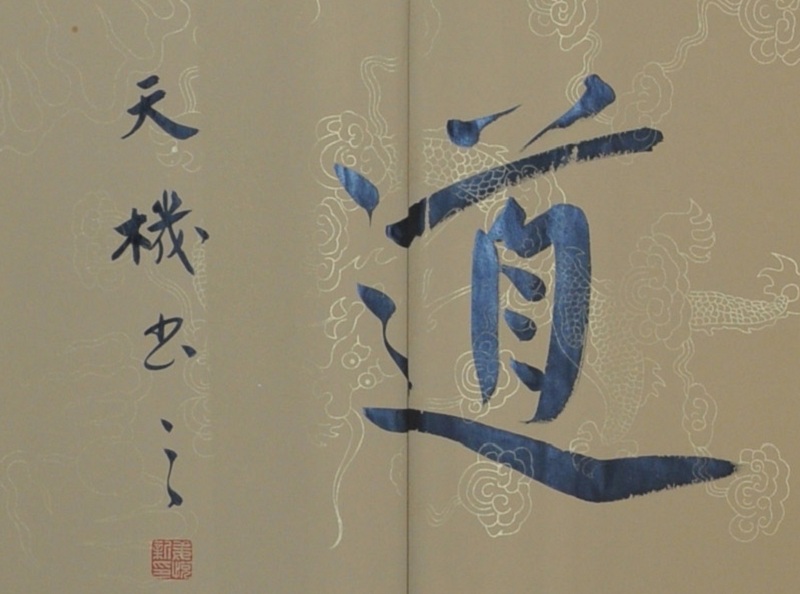 道
天機书之